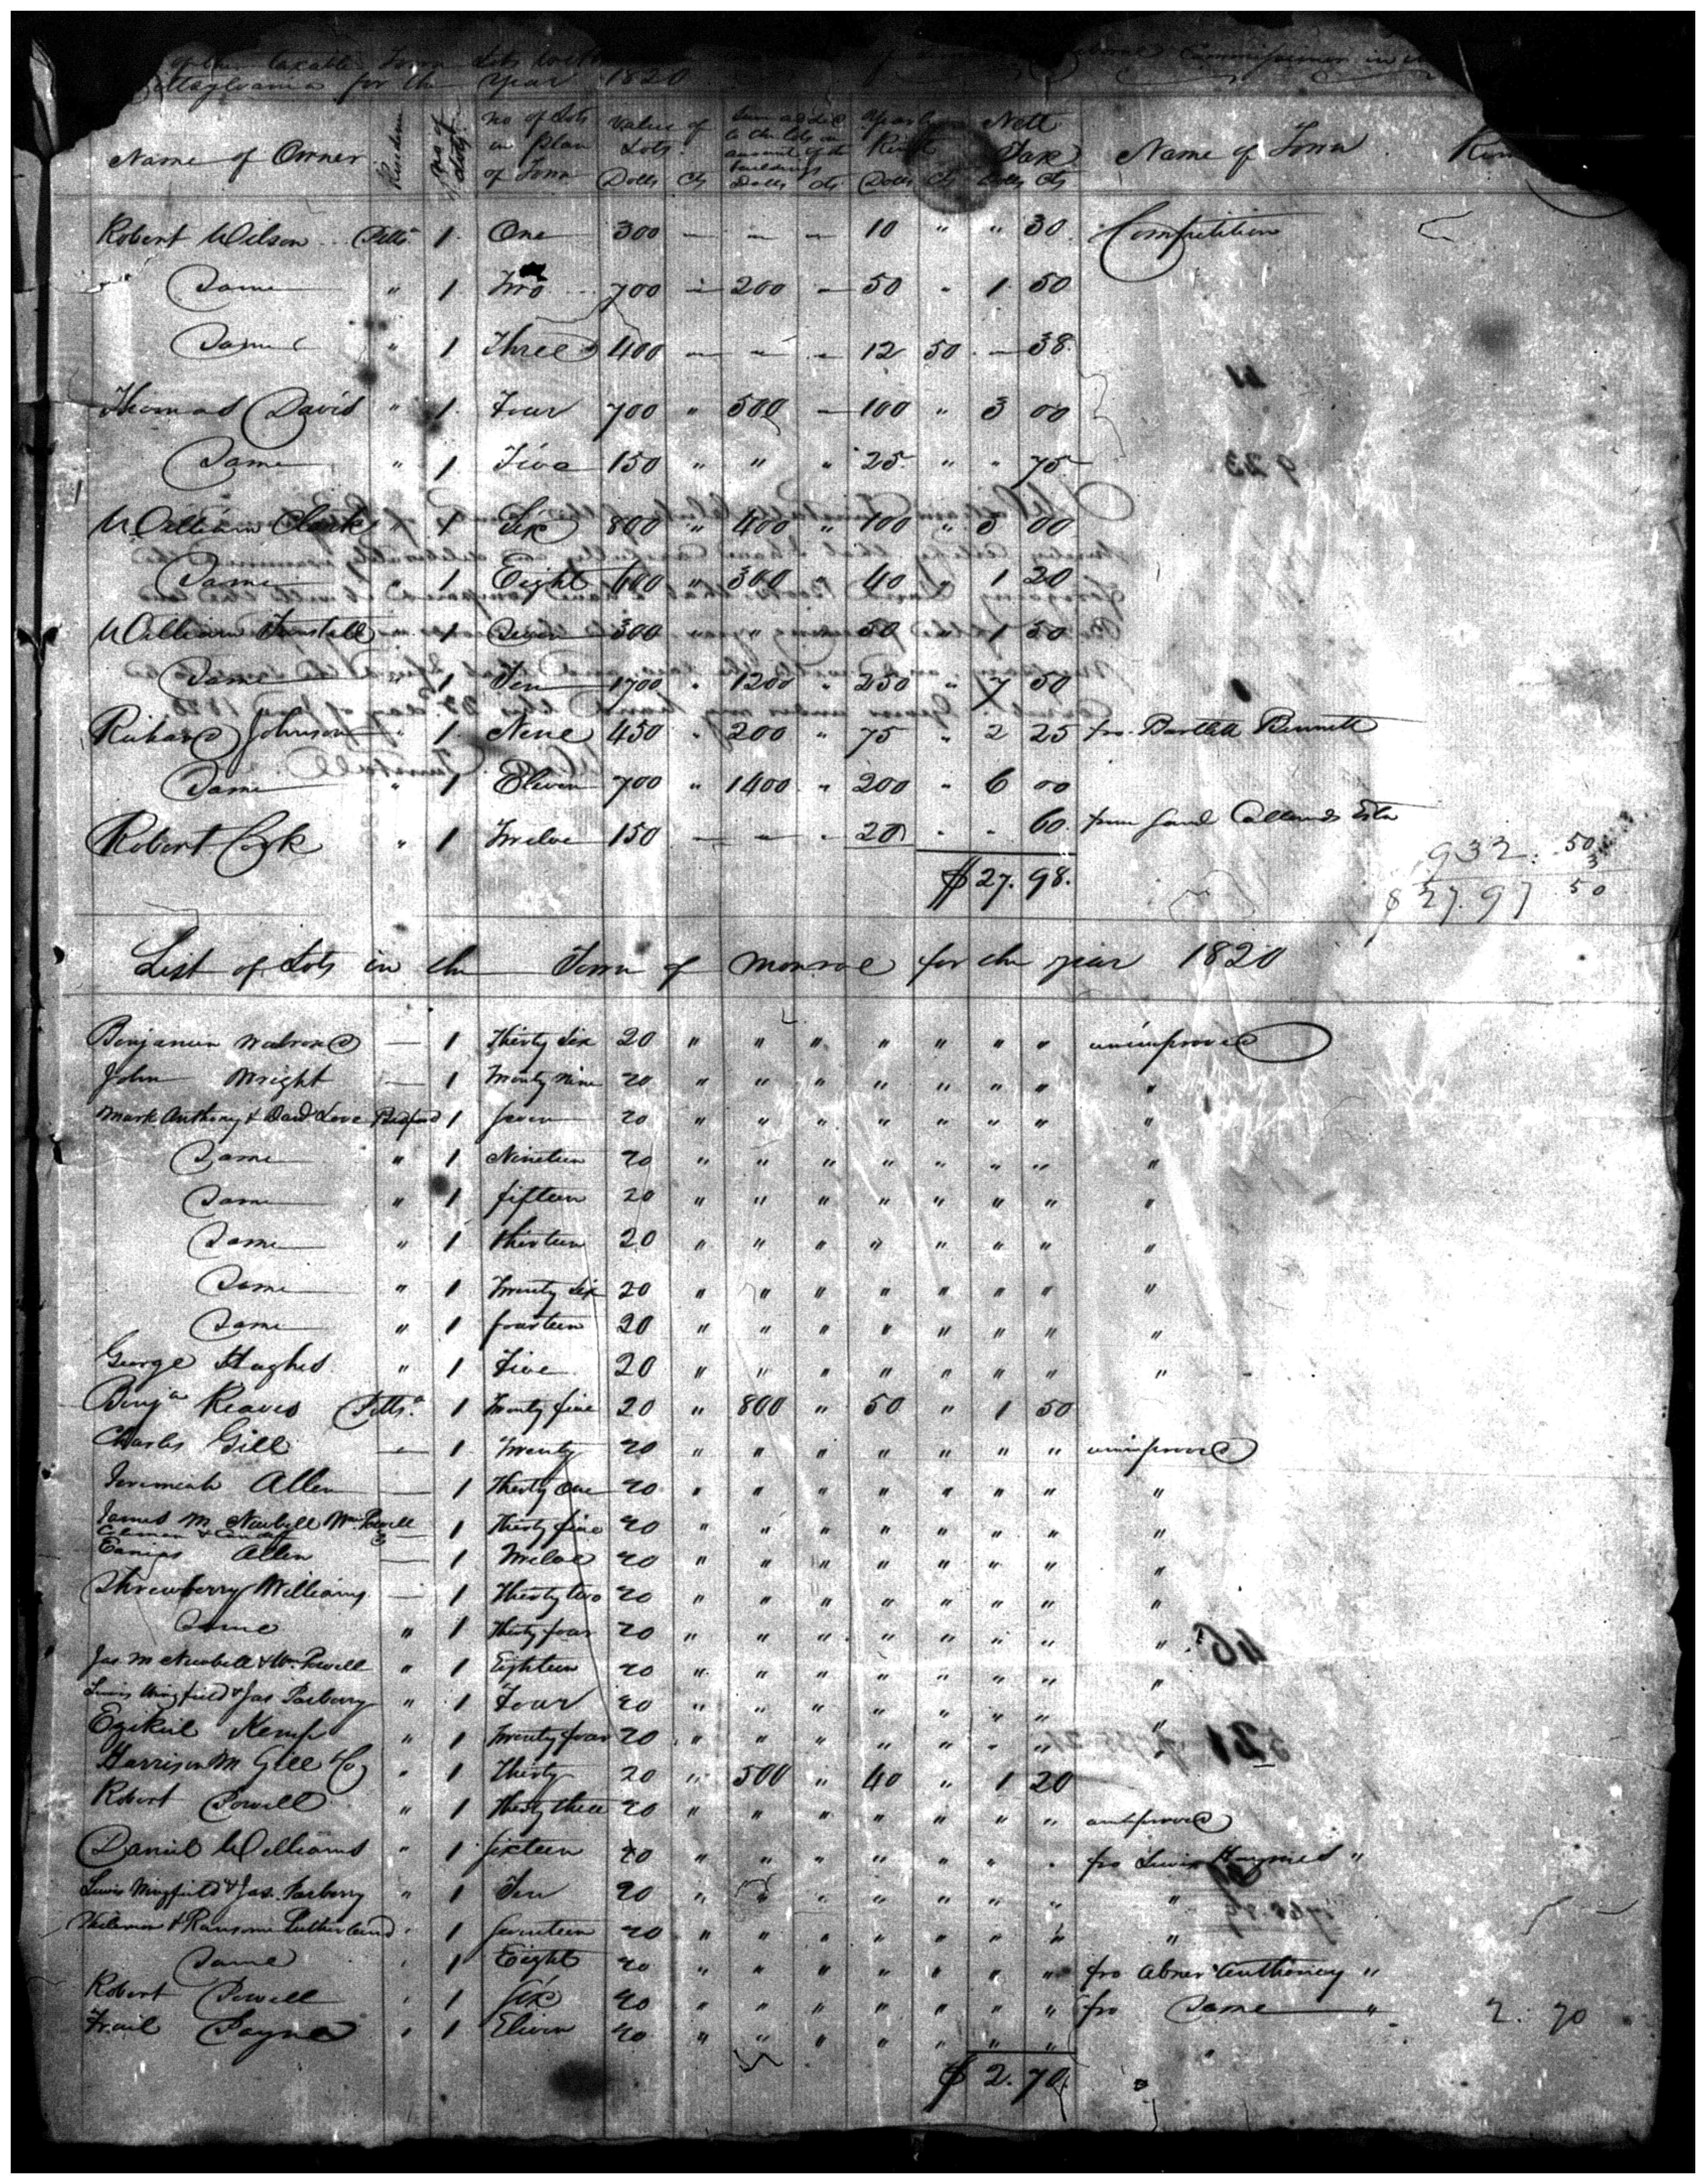 of the taxable Town Lots within Commissioner in
Pittsylvania for the Year 1820
Name of Owner Residence No of Lots No of Lots in plan of Town Value of Lots Dolls Cts Sum added to the lots on account of the buildings Dolls cts Yearly Rent Dolls Cts Nett Tax Dolls Cts Name of Town
Robert Wilson Pitts.a 1 One 300 — — — 10 " " 30 Competition
Same " 1 Two 700 — 200 — 50 " 1 50
Same " 1 Three 400 — — — 12 50 — 38
Thomas Davis " 1 Four 700 " 500 — 100 " 3 00
Same " 1 Five 150 " " " 25 " " 75
William Clark " 1 Six 800 " 400 " 100 " 3 00
Same " 1 Eight 600 " 300 " 40 " 1 20
William Tunstall " 1 Seven 300 " " " 50 " 1 50
Same " 1 Ten 1700 " 1200 " 250 " 7 50
Richard Johnson " 1 Nine 450 " 200 " 75 " 2 25 fro. Bartlett Bennett
Same " 1 Eleven 700 " 1400 " 200 " 6 00
Robert Cook " 1 Twelve 150 — — — 20 " " 60 from Callands Esta
932. 50
3
$ 27. 98.
$ 27.97 50
List of Lots in the Town of Monroe for the year 1820
Benjamin Walrond — 1 Thirty Six 20 " " " " " " " unimproved
John Wright — 1 Twenty Nine 20 " " " " " " " "
Mark Anthony & David Love Bedford 1 Seven 20 " " " " " " " "
Same " 1 Nineteen 20 " " " " " " " "
Same " 1 fifteen 20 " " " " " " " "
Same " 1 thirteen 20 " " " " " " " "
Same " 1 Twenty Six 20 " " " " " " " "
Same " 1 fourteen 20 " " " " " " " "
George Hughes " 1 Five 20 " " " " " " " "
Benja Reaves Pitts.a 1 Twenty five 20 " 800 " 50 " 1 50
Charles Gill — 1 Twenty 20 " " " " " " " unimproved
Jeremiah Allen — 1 Thirty One 20 " " " " " " " "
James M Newbell Wm Powell
Coleman & — 1 Thirty five 20 " " " " " " " "
Allen — 1 Twelve 20 " " " " " " " "
Shrewberry Williams — 1 Thirty two 20 " " " " " " " "
Same " 1 Thirty four 20 " " " " " " " "
Jas M Newbell & Wm Powell " 1 Eighteen 20 " " " " " " " "
Lewis Wingfield & Jas Parberry " 1 Four 20 " " " " " " " "
Ezekiel Kemp " 1 Twenty four 20 " " " " " " " "
Harrison M Gill & Co " 1 Thirty 20 " 500 " 40 " 1 20
Robert Powell " 1 Thirty three 20 " " " " " " " unimproved
Daniel Williams " 1 Sixteen 20 " " " " " " " fro Lewis Haynes "
Lewis Wingfield & Jas. Parberry " 1 Ten 20 " " " " " " " "
Philemon & Ransome Sutherland " 1 Seventeen 20 " " " " " " " "
Same " 1 Eight 20 " " " " " " " fro Abner Anthoney "
Robert Powell " 1 Six 20 " " " " " " " fro Same "
Payne " 1 Eleven 20 " " " " " " " "
2. 70
$ 2. 70